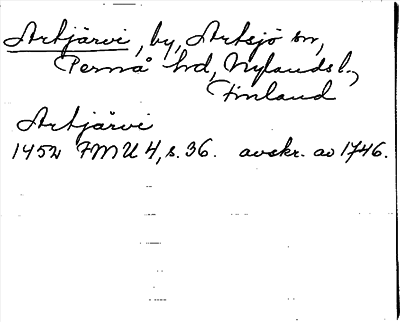 Artjärvi, by, Artsjö sn,
Pernå hd, Nylands l.,
Finland
Artjärvi
1452 FMU 4, s. 36. avskr. av 1746.